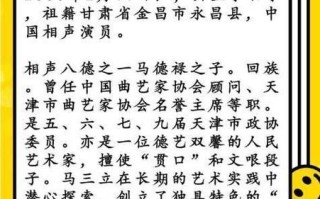 ，祖籍甘肃省金昌市永昌县，中
国相声演员。
相声八德之一马德禄之子。回族
。曾任中国曲艺家协会顾问、天
津市曲艺家协会名誉主席等职。
是五、六、七、九届天津市政协
委员。亦是一位德艺双馨的人民
艺术家，擅使“贯口”和文哏段
子。马三立在长期的艺术实践中
潜心探索，创立了独具特色的“